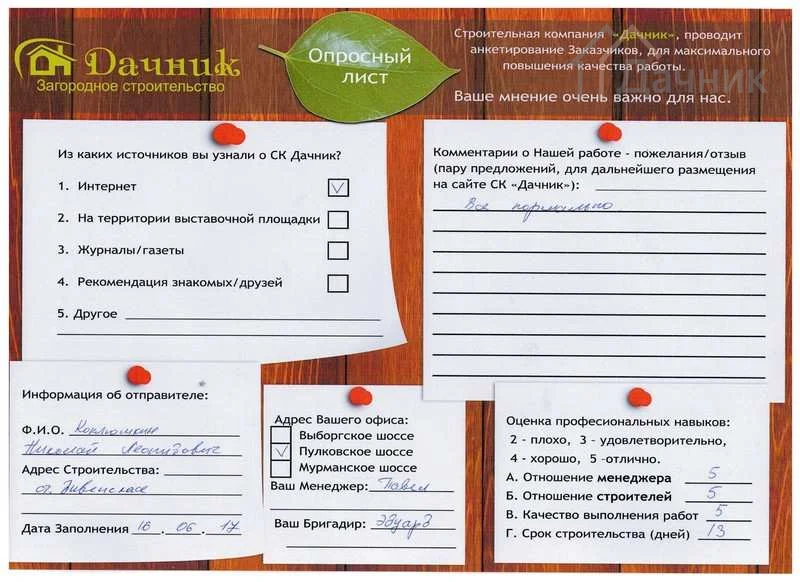 Дачник
Загородное строительство
Опросный
лист
Строительная компания «Дачник», проводит
анкетирование Заказчиков, для максимального
повышения качества работы.
Ваше мнение очень важно для нас.
Дачник
Из каких источников вы узнали о СК Дачник?
1. Интернет
2. На территории выставочной площадки
3. Журналы/газеты
4. Рекомендация знакомых/друзей
5. Другое
Комментарии о Нашей работе - пожелания/отзыв
(пару предложений, для дальнейшего размещения
на сайте СК «Дачник»):
Все нормально
Информация об отправителе:
Ф.И.О.
Николай
Адрес Строительства:
ст.
Дата Заполнения 16.06.17
Адрес Вашего офиса:
Выборгское шоссе
Пулковское шоссе
Мурманское шоссе
Ваш Менеджер: Павел
Ваш Бригадир: Эдуард
Оценка профессиональных навыков:
2 - плохо, 3 - удовлетворительно,
4 - хорошо, 5 -отлично.
А. Отношение менеджера 5
Б. Отношение строителей 5
В. Качество выполнения работ 5
Г. Срок строительства (дней) 13